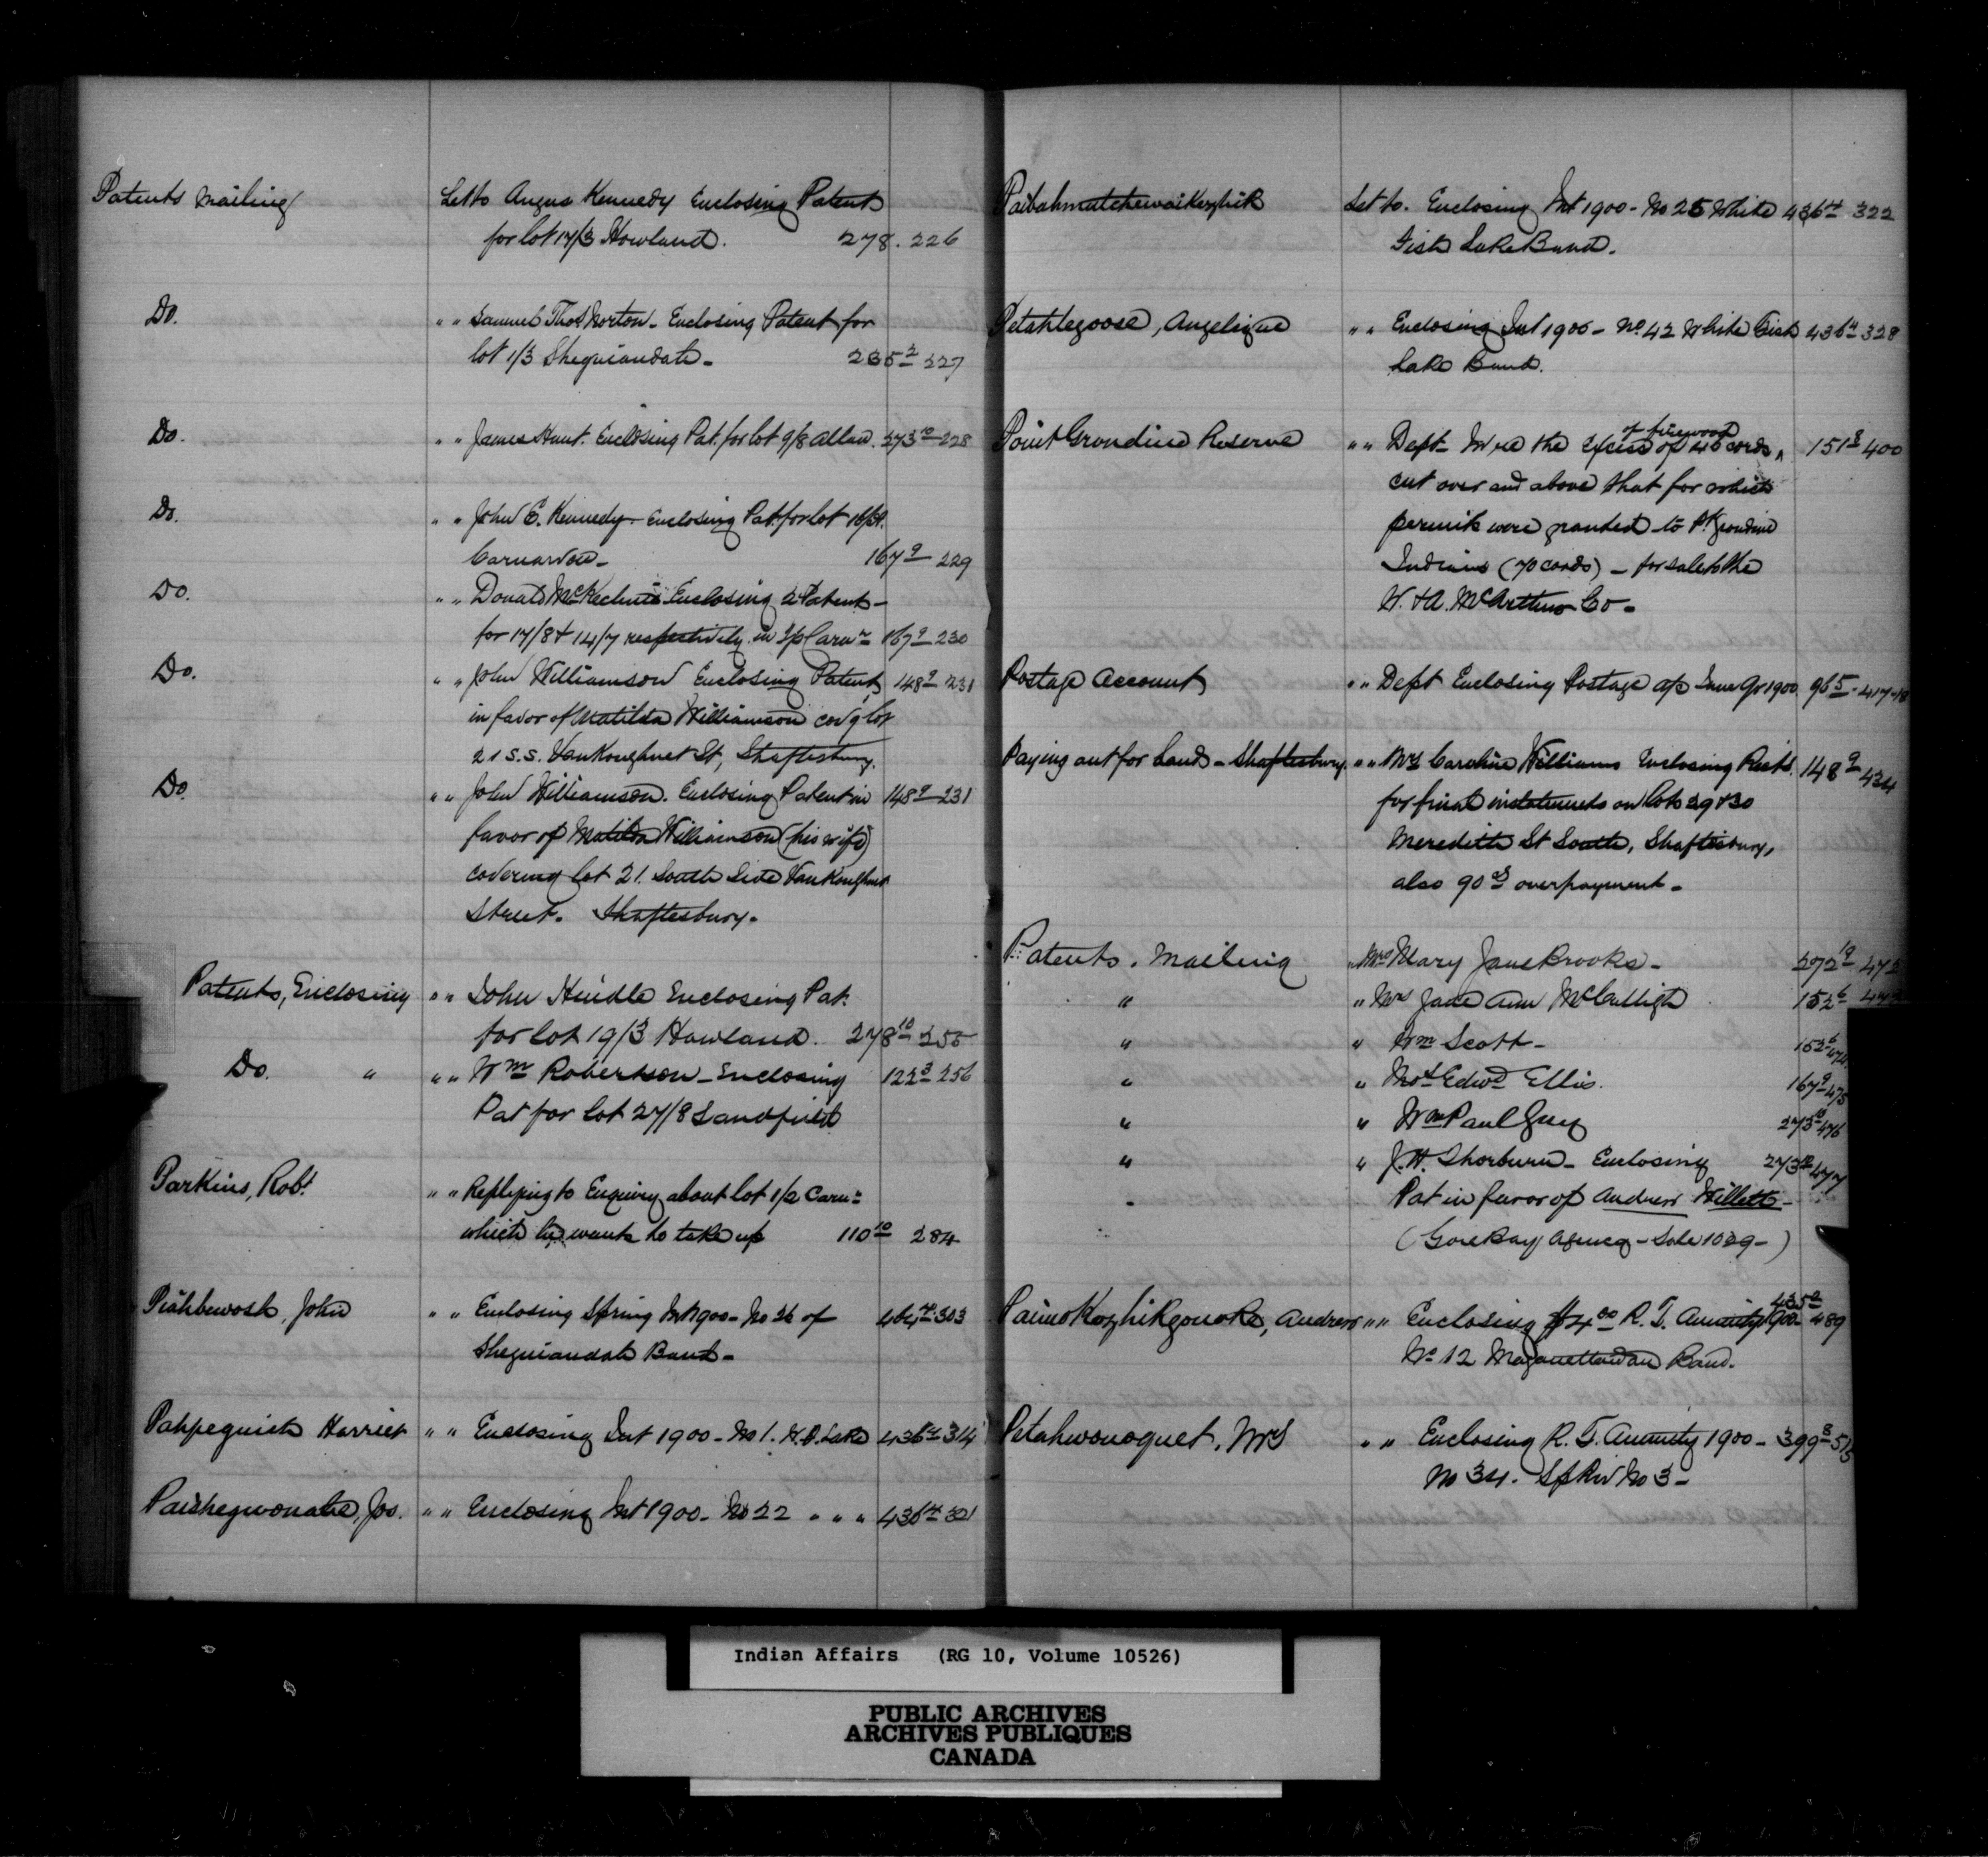 Patents Mailing Let to Angus Kennedy Enclosing Patent
for lot 17/3 Howland. 278. 226
Do. " " Samuel Thos Norton - Enclosing Patent for
lot 1/3 Sheguiandah - 235 2 227
Do. " " James Hunt. Enclosing Pat. for lot 9/8 Allan. 273 10 228
Do. " " John E. Kennedy - Enclosing Pat. for lot
Carnarvon - 167 9 229
Do. " " Donald McKechnie Enclosing 2 Patents -
for 17/8 & 14/7 respectively in T/p Carnn 167 9 230
Do. " " John Williamson Enclosing Patent 148 9 231
in favor of Matilda Williamson cov'g lot
21 S.S. VanKoughnet St, Shaftesbury.
Do. " " John Williamson. Enclosing Patent in 148 9 231
favor of Matilda Williamson (his wife)
covering lot 21. South Side VanKoughnet
Street. Shaftesbury.
Patents, Enclosing " " John Hindle Enclosing Pat.
for lot 19/3 Howland. 278 10 255
Do. " " " Wm Robertson - Enclosing 122 3 256
Pat for lot 27/8 Sandfield
Parkins, Robt " " Replying to Enquiry about lot 1/2 Carn:
which he wants to take up 110 10 284
Piahbewosh, John " " Enclosing Spring Int 1900 - No 26 of 464 4 303
Sheguiandah Band -
Pahpeguish Harriet " " Enclosing Int 1900 - No 1. W.F. Lake 436 4 314
Paishegwonabe, Jos. " " Enclosing Int 1900 - No 22 " " " 436 4 321
Paibahmatchewaikezhik Let to. Enclosing Int 1900 - No 25 White 436 4 322
Fish Lake Band.
Petahtegoose, Angelique " " Enclosing Int 1900 - No 42 White Fish 436 4 328
Lake Band.
of firewood
Point Grondine Reserve " " Dept - In re the Excess of 46 cords ^ 151 8 400
cut over and above that for which
permits were granted to Pt Grondine
Indians (70 cords) - for sale to the
W. & A. McArthur Co -
Postage Account " " Dept Enclosing Postage a/c June Qr 1900. 96 5 - 417-18
Paying out for Land - Shaftesbury. " " Mrs Caroline Williams Enclosing Rect. 148 9 434
for final instalments on lots 29 & 30
Meredith St South, Shaftesbury,
also 90 cts overpayment -
Patents. Mailing " Mrs Mary Jane Brooks - 272 10 472
" " Mrs Jane Ann McCulligh 152 6 473
" " Wm Scott - 152 6 474
" " Thos Edwd Ellis. 167 9 475
" " Wm Paul Grey 273 10 476
" " J.H. Thorburn - Enclosing 273 10 477
" Pat in favor of Andrew Willett -
(Gore Bay Agency - Sale 1029 -)
435 2
Paimokezhikgouoke, Andrew " " Enclosing $4.00 R.T. Annuity 1900 - 489
No 12 Maganettawan Band.
Petahwonoquet, Mrs " " Enclosing R.T. Annuity 1900 - 399 8 515
No 34. Sp Riv No 3 -
Indian Affairs (RG 10, Volume 10526)
PUBLIC ARCHIVES
ARCHIVES PUBLIQUES
CANADA